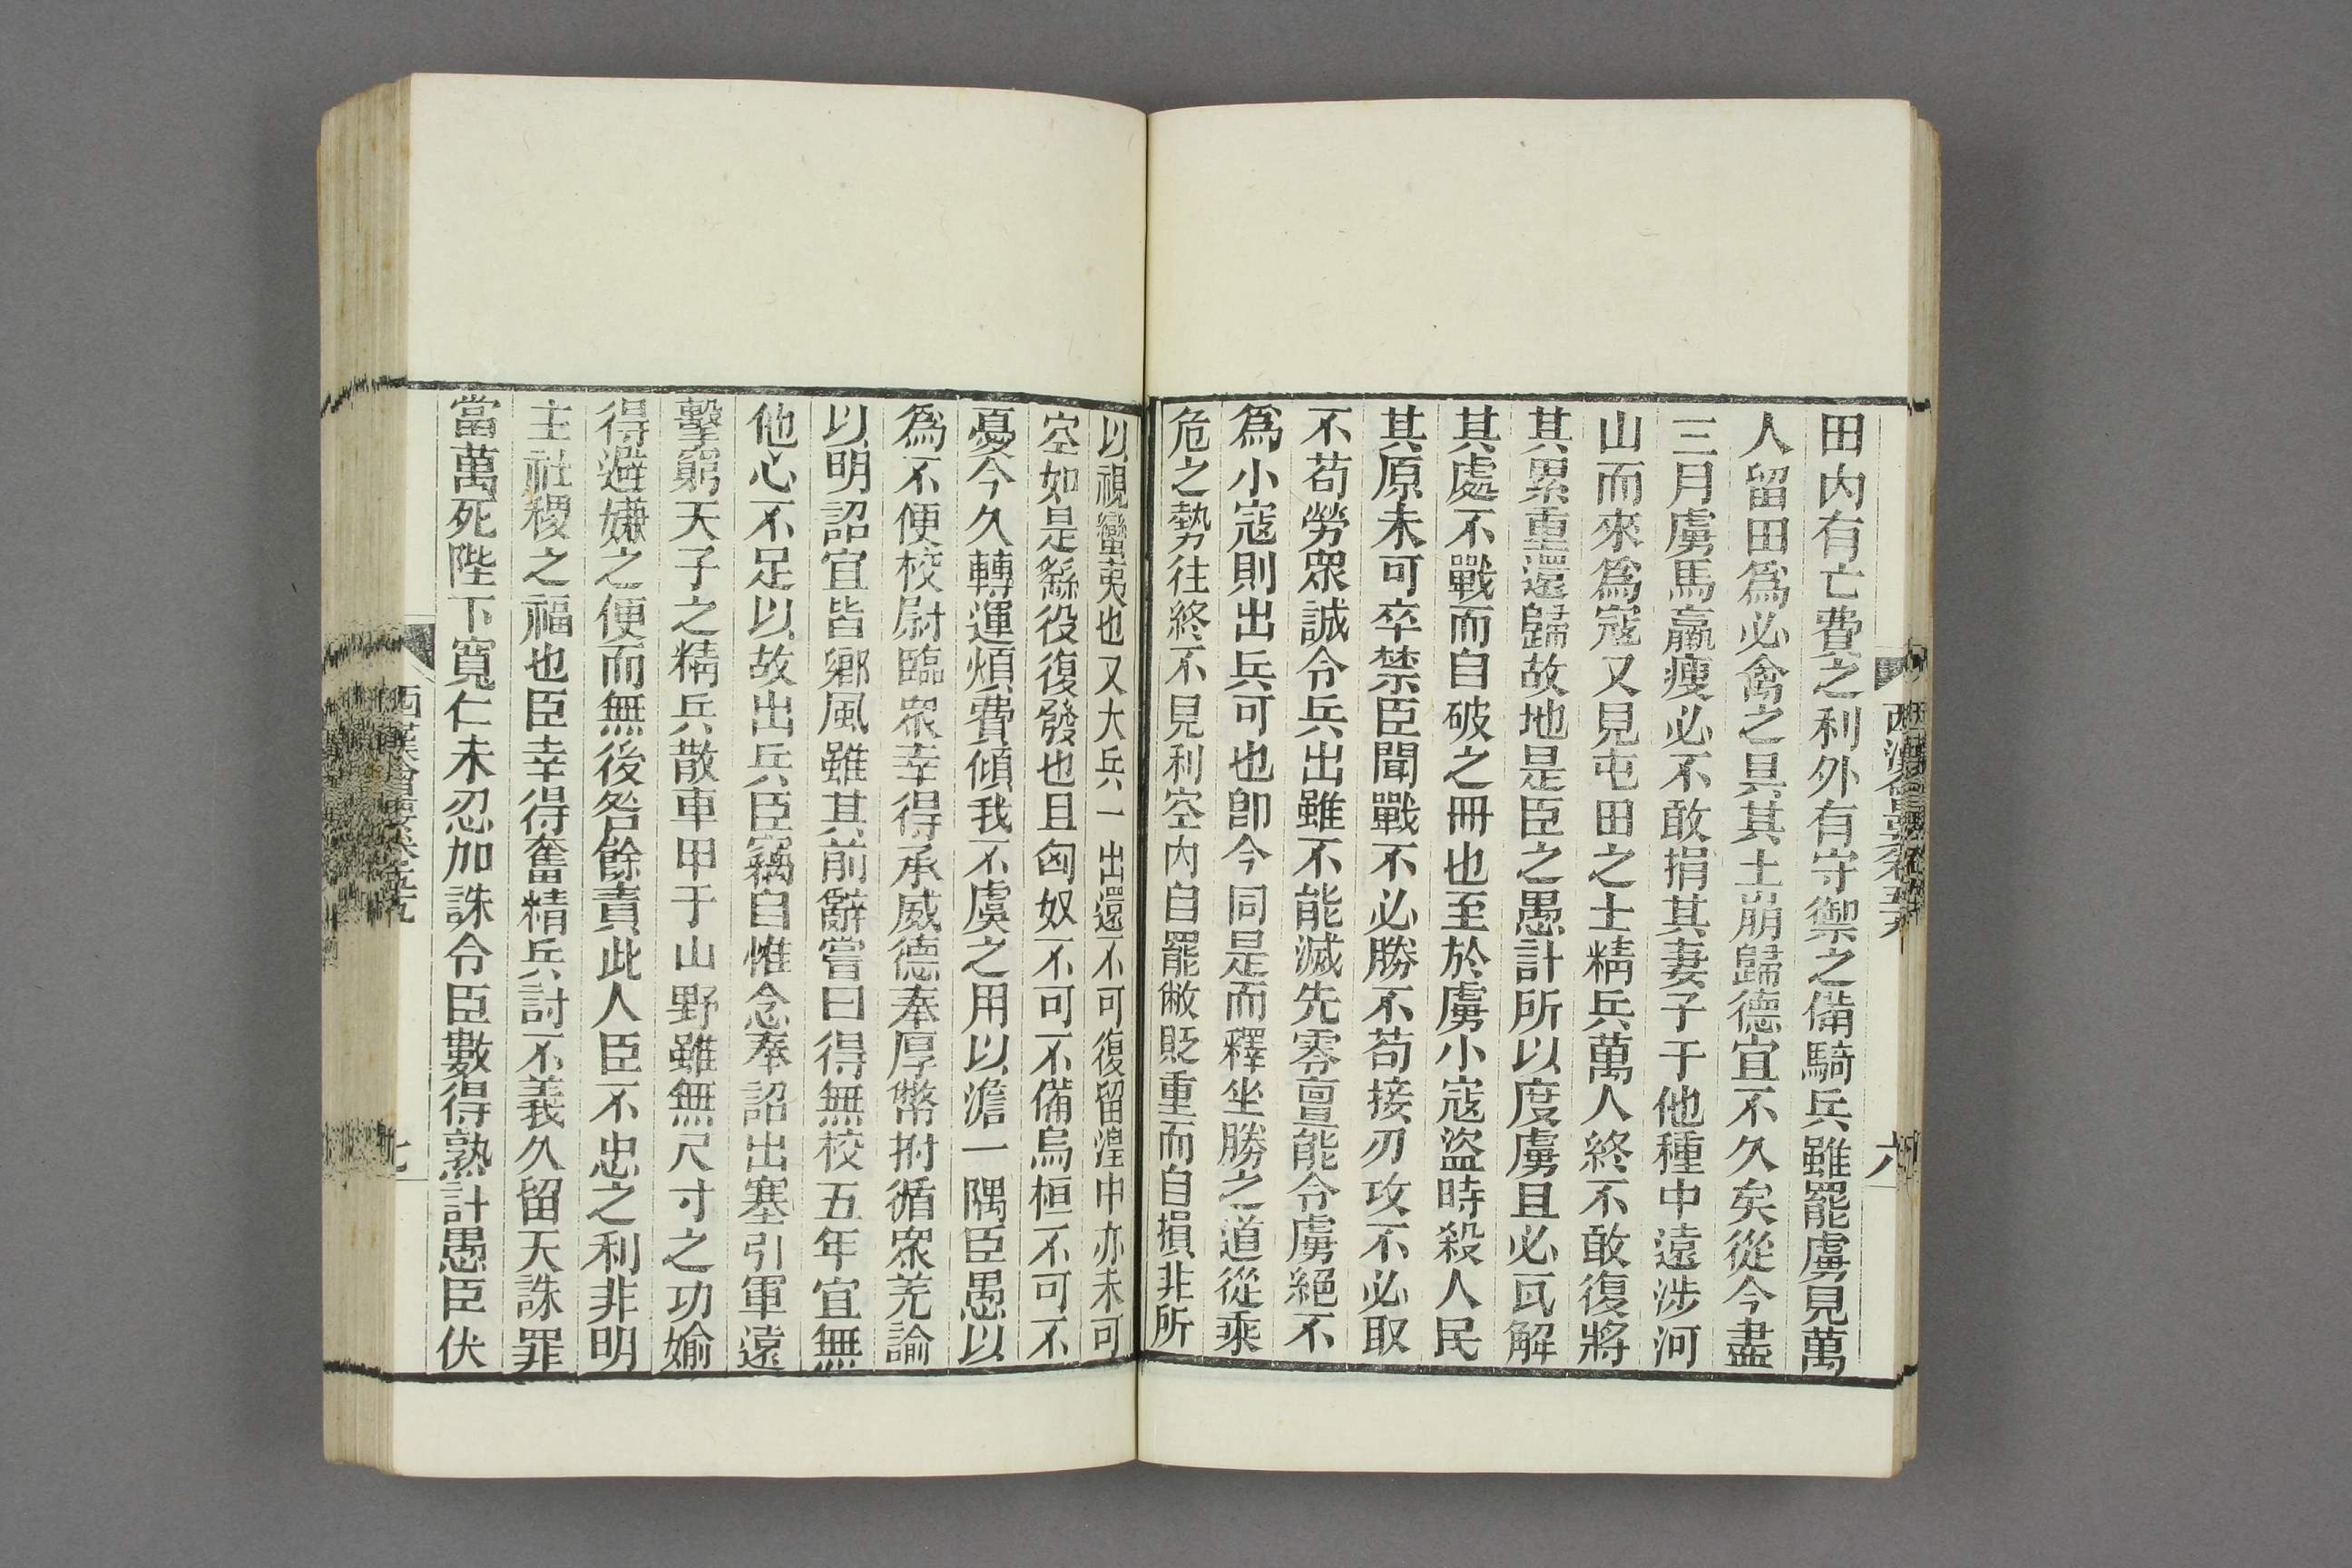 田内有亡費之利外有守禦之備騎兵雖罷虜見萬
人留田爲必禽之具其土崩歸德宜不久矣從今盡
三月虜馬羸瘦必不敢捐其妻子于他種中遠涉河
山而來爲寇又見屯田之士精兵萬人終不敢復將
其累重還歸故地是臣之愚計所以度虜且必瓦解
其處不戰而自破之冊也至於虜小寇盜時殺人民
其原未可卒禁臣聞戰不必勝不苟接刃攻不必取
不苟勞衆誠令兵出雖不能滅先零亶能令虜絕不
爲小寇則出兵可也卽今同是而釋坐勝之道從乘
危之勢往終不見利空内自罷敝貶重而自損非所
以視蠻夷也又大兵一出還不可復留湟中亦未可
空如是繇役復發也且匈奴不可不備烏桓不可不
憂今久轉運煩費傾我不虞之用以澹一隅臣愚以
爲不便校尉臨衆幸得承威德奉厚幣拊循衆羌諭
以明詔宜皆鄉風雖其前辭嘗曰得無校五年宜無
他心不足以故出兵臣竊自惟念奉詔出塞引軍遠
擊窮天子之精兵散車甲于山野雖無尺寸之功媮
得避嫌之便而無後咎餘責此人臣不忠之利非明
主社稷之福也臣幸得奮精兵討不義久留天誅罪
當萬死陛下寬仁未忍加誅令臣數得熟計愚臣伏
西漢會要卷五十六
六
西漢會要卷五十六
七